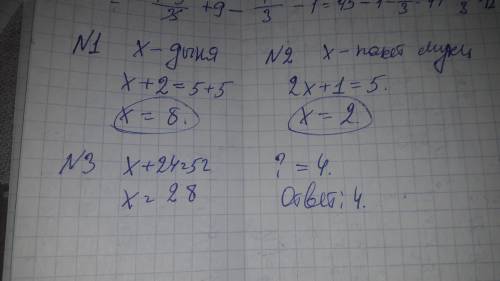 +9 - 7/3 - 1 = 45 - 1 -
N1 x - дыня
x + 2 = 5 + 5
x = 8.
N2 x - пакет муки
2x + 1 = 5.
x = 2.
N3 x + 24 = 52
x = 28
? = 4.
Ответ: 4.